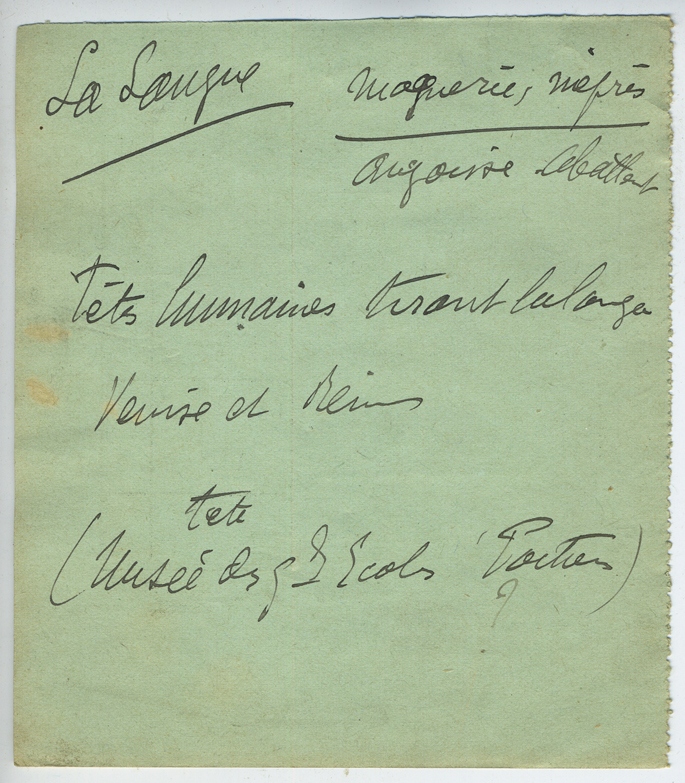 La Langue
moquerie, mépris
angoisse abattent
Têtes humaines tirant la langue
Venise et Reims
tete
(Musée des gdes Ecoles Poitiers)
?